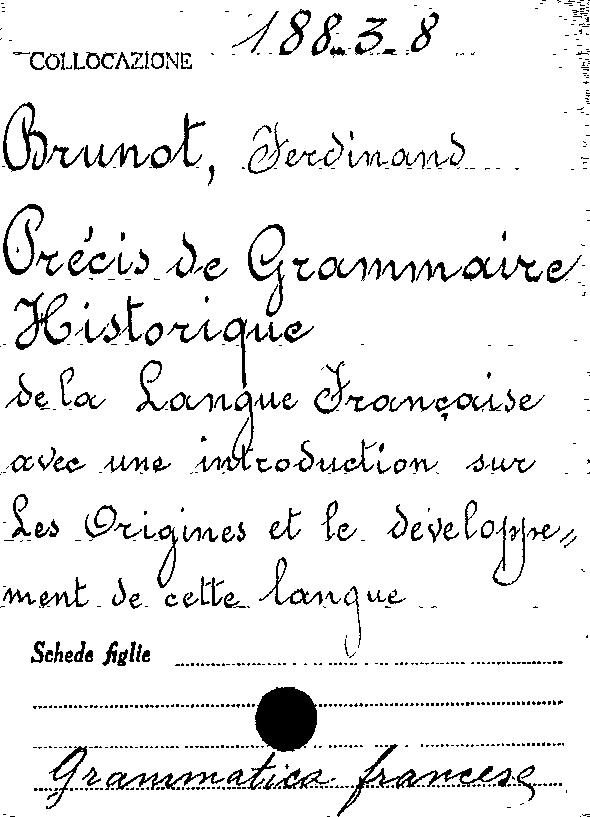 COLLOCAZIONE 188-3-8
Brunot, Ferdinand
Précis de Grammaire
Historique
de la Langue Française
avec une introduction sur
Les Origines et le développe=
ment de cette langue
Schede figlie
Grammatica francese